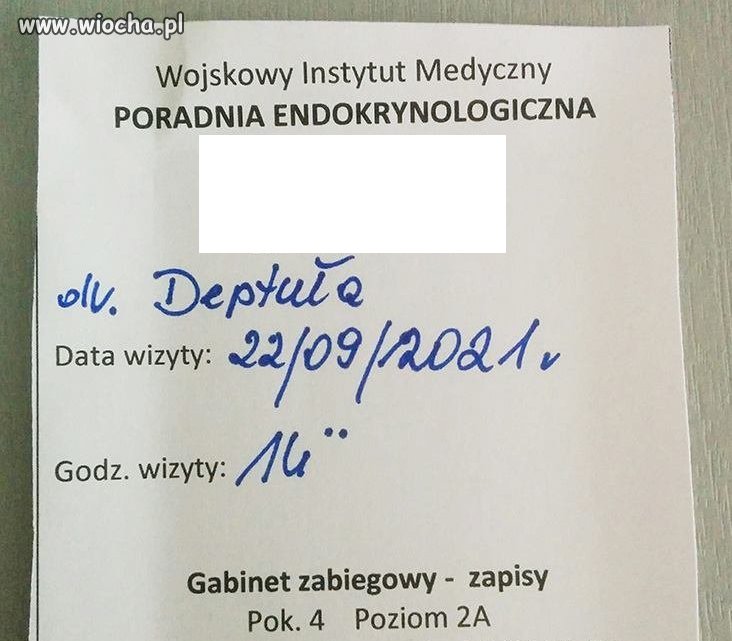 www.wiocha.pl
Wojskowy Instytut Medyczny
PORADNIA ENDOKRYNOLOGICZNA
dr. Deptuła
Data wizyty: 22/09/2021r
Godz. wizyty: 14¨
Gabinet zabiegowy - zapisy
Pok. 4 Poziom 2A